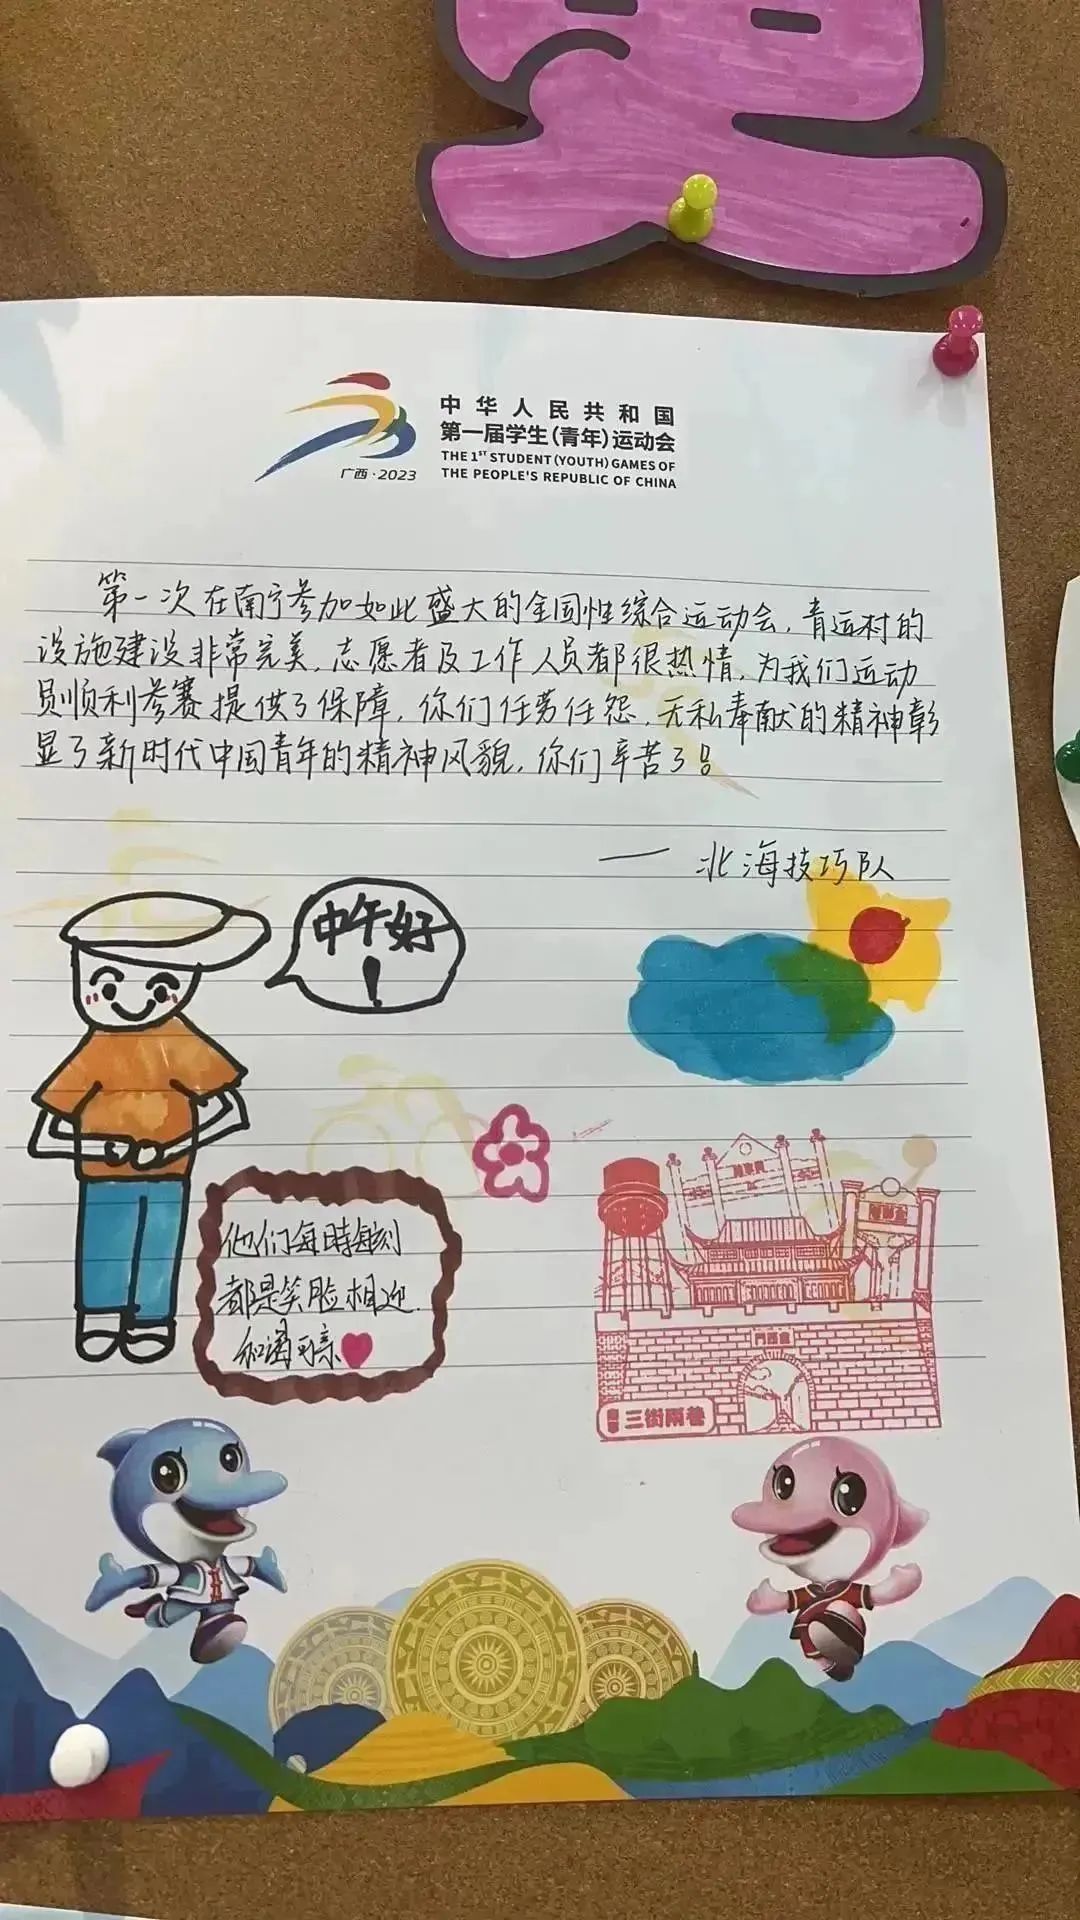 中华人民共和国
第一届学生(青年)运动会
THE 1ST STUDENT (YOUTH) GAMES OF
THE PEOPLE'S REPUBLIC OF CHINA
广西·2023
第一次在南宁参加如此盛大的全国性综合运动会，青运村的
设施建设非常完美，志愿者及工作人员都很热情，为我们运动
员顺利参赛提供了保障，你们任劳任怨，无私奉献的精神彰
显了新时代中国青年的精神风貌，你们辛苦了！
—— 北海技巧队
中午好
！
他们每時每刻
都是笑脸相迎
和蔼可亲
三街兩巷